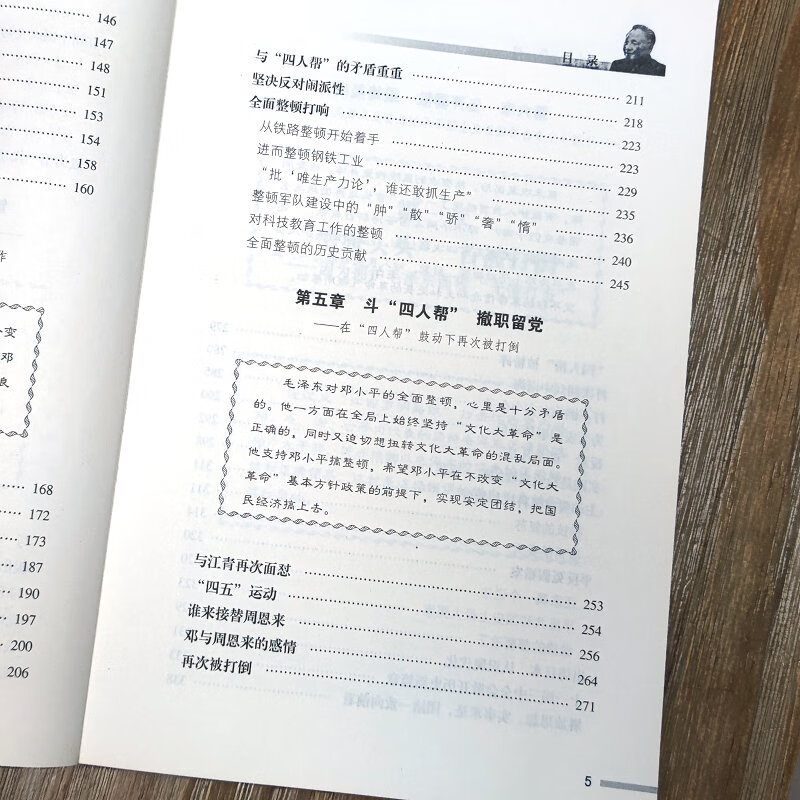 146
147
148
151
153
154
158
160
作
变
邓
良
168
172
173
187
190
197
200
206
目 录
与“四人帮”的矛盾重重 211
坚决反对闹派性 218
全面整顿打响 223
从铁路整顿开始着手 223
进而整顿钢铁工业 229
“批‘唯生产力论’，谁还敢抓生产” 235
整顿军队建设中的“肿”“散”“骄”“奢”“惰” 236
对科技教育工作的整顿 240
全面整顿的历史贡献 245
第五章 斗“四人帮” 撤职留党
——在“四人帮”鼓动下再次被打倒
毛泽东对邓小平的全面整顿，心里是十分矛盾
的。他一方面在全局上始终坚持“文化大革命”是
正确的，同时又迫切想扭转文化大革命的混乱局面。
他支持邓小平搞整顿，希望邓小平在不改变“文化大
革命”基本方针政策的前提下，实现安定团结，把国
民经济搞上去。
与江青再次面怼 253
“四五”运动 254
谁来接替周恩来 256
邓与周恩来的感情 264
再次被打倒 271
5